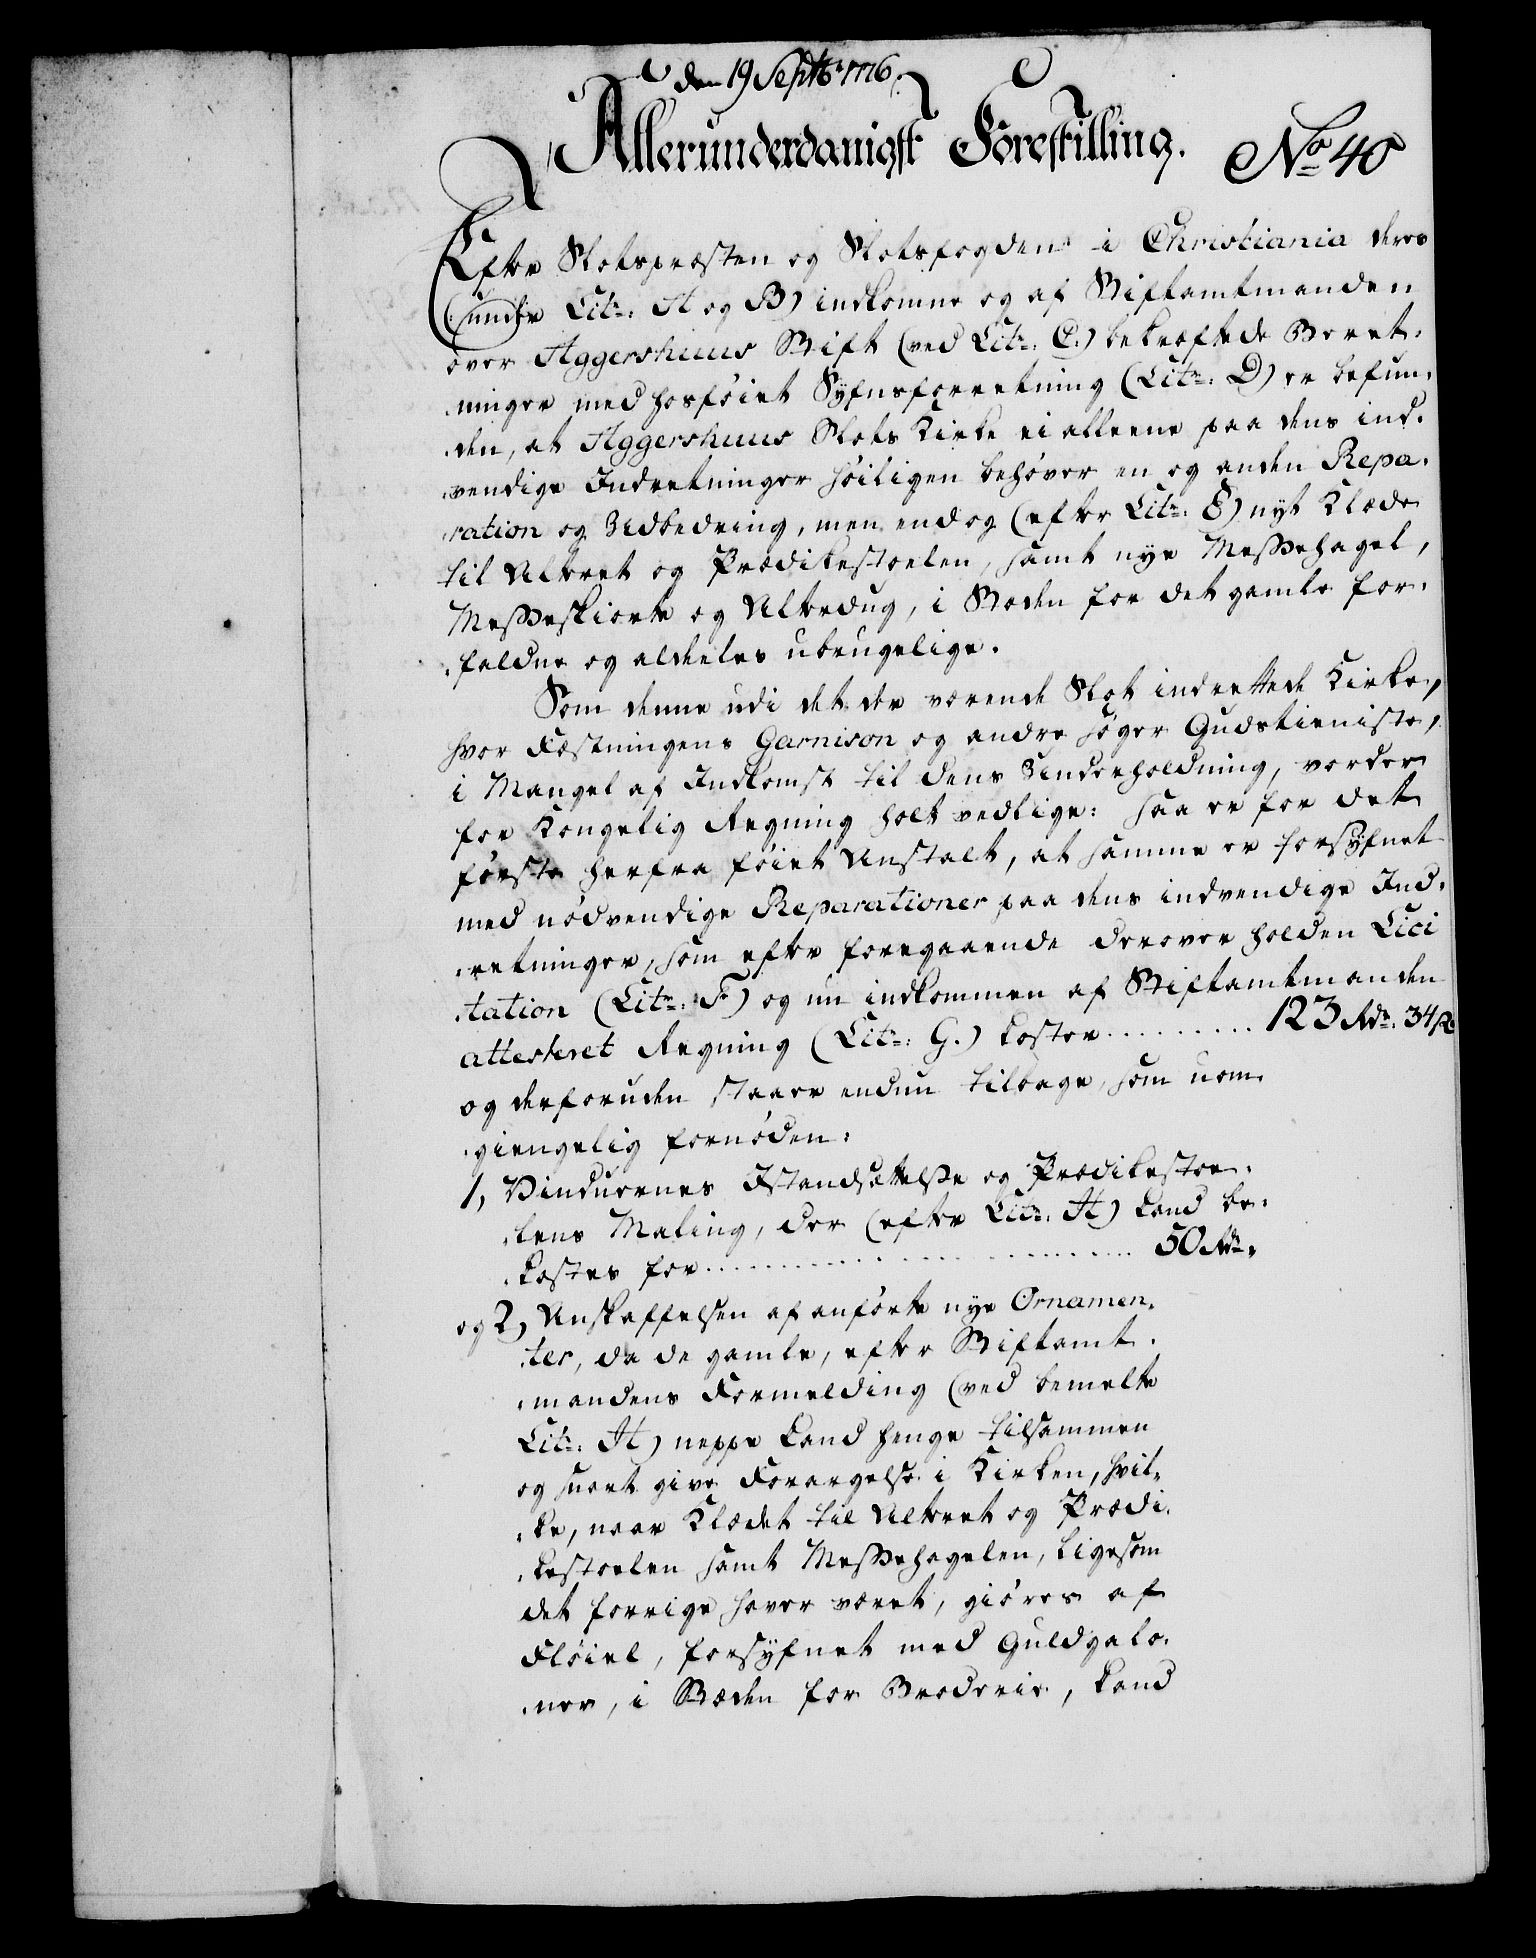 den 19 Septbr 1776.
Allerunderdanigst Forestilling.
No 40
Efter Slotspræsten og Slotsfogden i Christiania deres
(under Litr: A og B) indkomne og af Stiftamtmanden
over Aggershuus Stift (ved Litr: C.) bekræftede Beret-
ninger med hosføiet Syfnsforretning (Litr: D) er befun-
den, at Aggershuus Slots Kirke ei alleene paa dens ind-
vendige Indretninger høiligen behøver en og anden Repa-
ration og Udbedring, men endog (efter Litr: E) nyt Klæde
til Alteret og Prædikestoelen, samt nye Messehagel,
Messeskiorte og Alterdug, i Steden for det gamle for-
faldne og aldeeles ubrugelige.
Som denne udi det der værende Slot indrettede Kirke,
hvor Fæstningens Garnison og andre søger Gudstieniste,
i Mangel af Indkomst til dens Underholdning, vorder
for Kongelig Regning holt vedlige: saa er for det
første herfra føiet Anstalt, at samme er forsyfnet
med nødvendige Reparationer paa dens indvendige Ind-
retninger, som efter foregaaende derover holden Lici
tation (Litr: F) og nu indkommen af Stiftamtmanden
attesteret Regning (Litr: G.) koster .......... 123 Rdr. 34 ß
og derforuden staaer endnu tilbage, som uom-
giengelig fornøden:
1, Vinduernes Istandsættelse og Prædikestoe-
lens Maling, der (efter Litr: H) kand be-
kostes for .......................... 50 Rdr.
og 2, Anskaffelsen af anførte nye Ornamen-
ter, da de gamle, efter Stiftamt-
mandens Formelding (ved bemelte
Litr: H) neppe kand henge tilsammen
og snart give Forargelse i Kirken, hvil-
ke, naar Klædet til Alteret og Prædi-
kestoelen samt Messehagelen, ligesom
det forrige haver været, giøres af
Fløiel, forsyfnet med Guldgalo-
ner, i Stæden for Broderie, kand